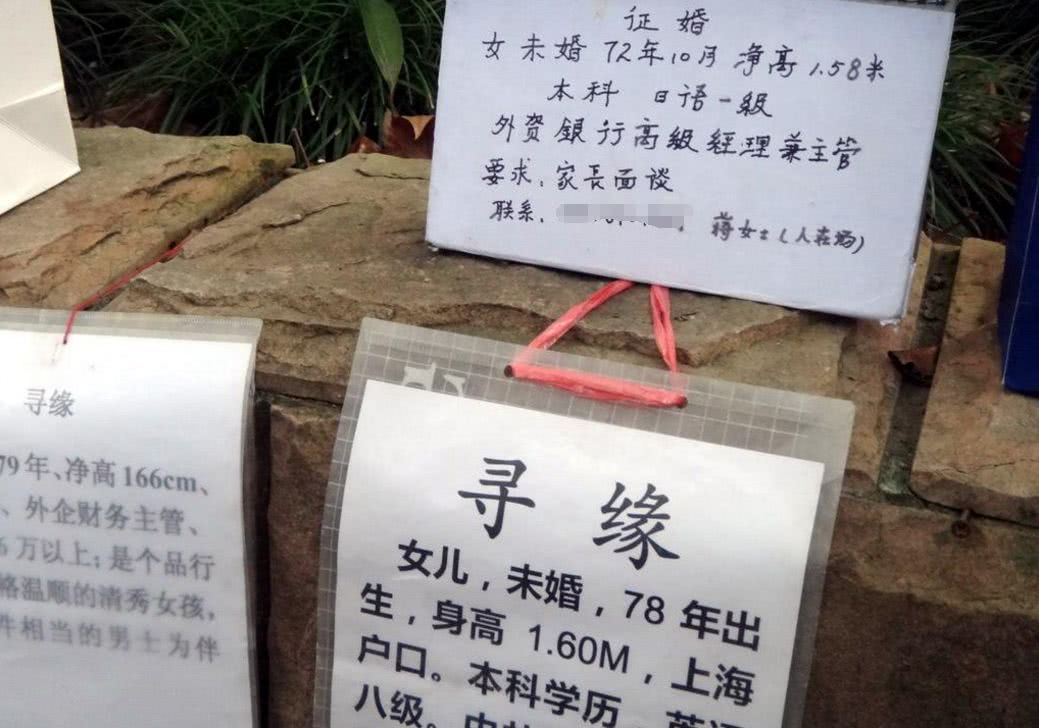 征婚
女未婚 72年10月 净高1.58米
本科 日语一级
外资银行高级经理兼主管
要求：家长面谈
联系： 蒋女士（人在场）
寻缘
79年、净高166cm、
、外企财务主管、
6万以上；是个品行
格温顺的清秀女孩，
件相当的男士为伴
寻缘
女儿，未婚，78年出
生，身高 1.60M，上海
户口。本科学历
八级。